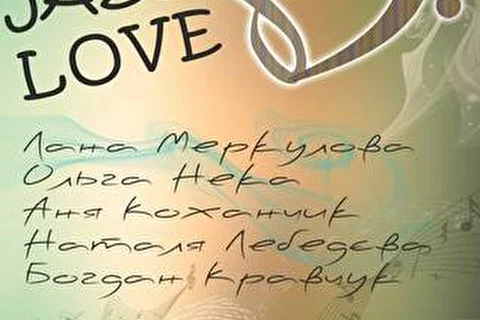 LOVE
Лана Меркулова
Ольга Нека
Аня Коханчик
Наталя Лебедєва
Богдан Кравчук